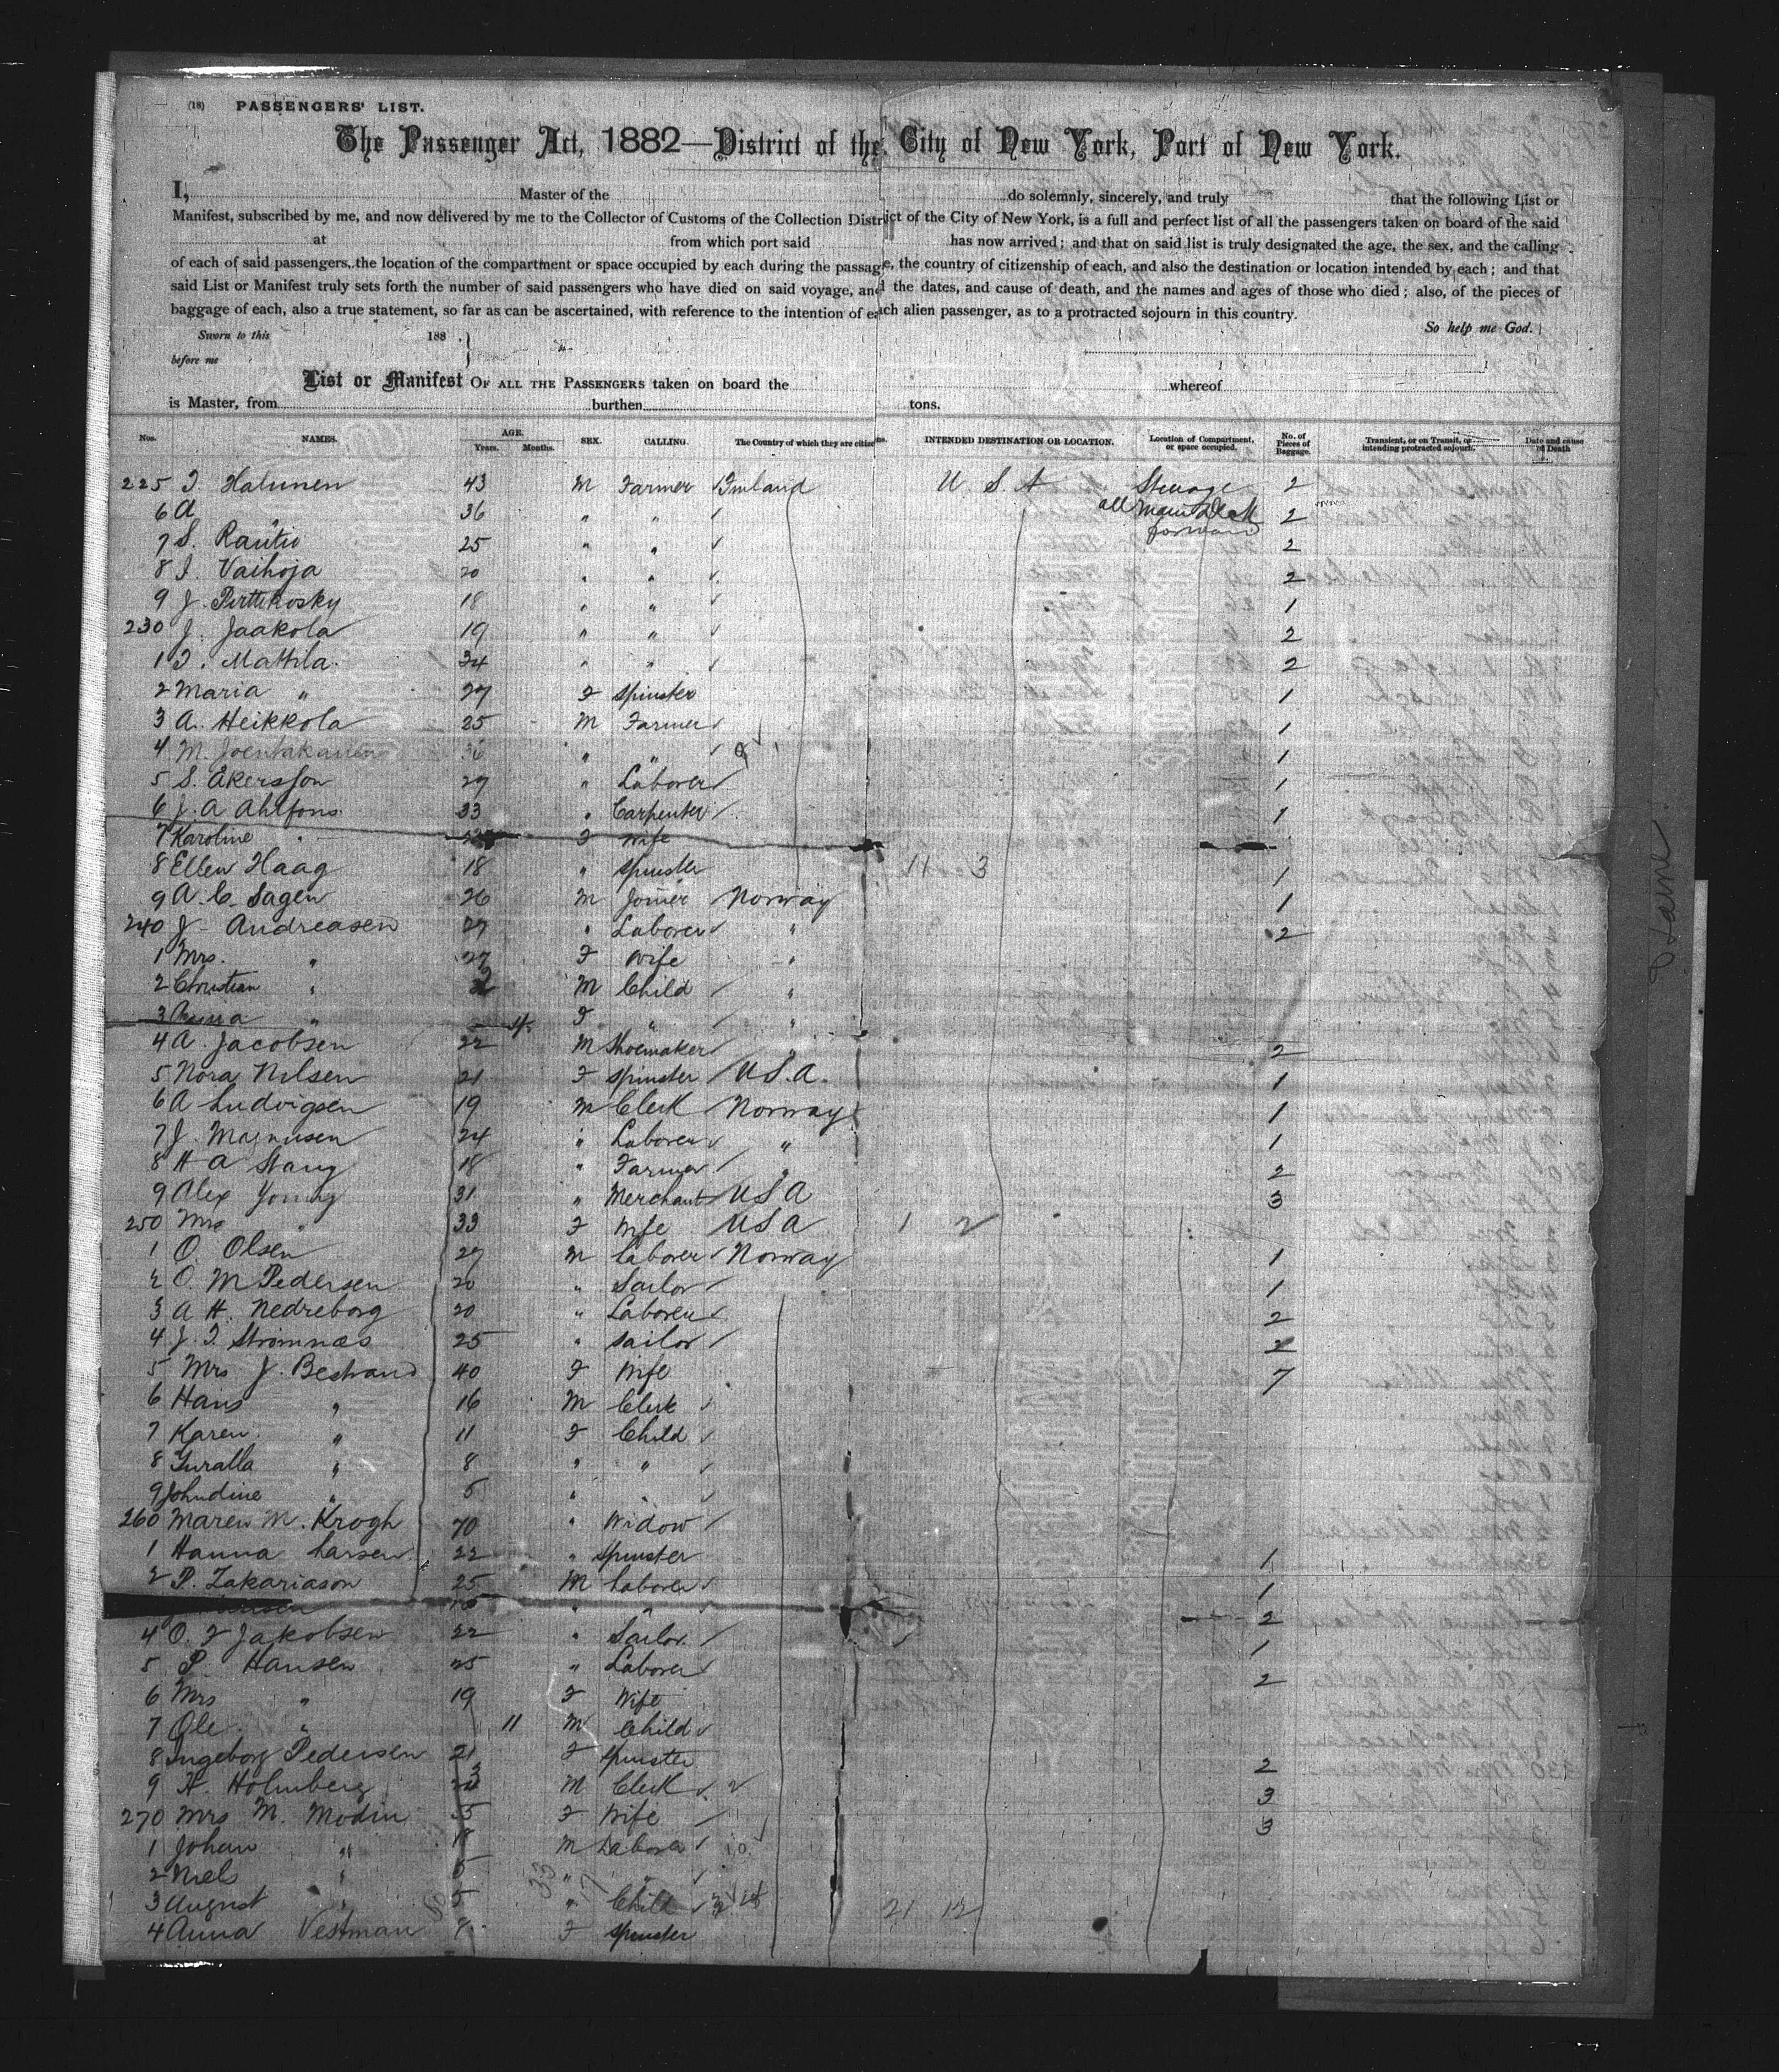 (18) PASSENGERS' LIST.
The Passenger Act, 1882—District of the City of New York, Port of New York.
I, Master of the do solemnly, sincerely, and truly that the following List or
Manifest, subscribed by me, and now delivered by me to the Collector of Customs of the Collection District of the City of New York, is a full and perfect list of all the passengers taken on board of the said
at from which port said has now arrived; and that on said list is truly designated the age, the sex, and the calling
of each of said passengers, the location of the compartment or space occupied by each during the passage, the country of citizenship of each, and also the destination or location intended by each; and that
said List or Manifest truly sets forth the number of said passengers who have died on said voyage, and the dates, and cause of death, and the names and ages of those who died; also, of the pieces of
baggage of each, also a true statement, so far as can be ascertained, with reference to the intention of each alien passenger, as to a protracted sojourn in this country.
So help me God.
Sworn to this 188 .
before me
List or Manifest OF ALL THE PASSENGERS taken on board the whereof
is Master, from burthen tons.
Nos. NAMES. AGE. Years. Months. SEX. CALLING. The Country of which they are citizens. INTENDED DESTINATION OR LOCATION. Location of Compartment, or space occupied. No. of Pieces of Baggage. Transient, or on Transit, or intending protracted sojourn. Date and cause of Death
225 I. Halunen 43 M Farmer Finland U. S. A Steerage 2
6 A " 36 " " all Main deck forward 2
7 S. Rautio 25 " " 2
8 I. Vaihoja 20 " " 2
9 J. Pirttikosky 18 " " 1
230 J. Jaakola 19 " " 2
1 I. Mattila 34 " " 2
2 Maria " 27 F Spinster 1
3 A. Heikkola 25 M Farmer 1
4 M. 36 " " 1
5 S. Åkersson 27 " Laborer 1
6 J. A Ahlfons 33 " Carpenter 1
7 Karoline " F Wife
8 Ellen Haag 18 " Spinster 11 3 1
9 A. C. Sagen 26 M Joiner Norway 1
240 J. Andreasen 27 " Laborer " 2
1 Mrs. " 27 F Wife "
2 Christian " 2 M Child "
3 Anna " 4 F " "
4 A. Jacobsen 22 M Shoemaker " 2
5 Nora Nilsen 21 F Spinster U.S.A. 1
6 A Ludvigsen 19 M Clerk Norway 1
7 J. Magnusen 24 " Laborer " 1
8 H A Stang 18 " Farmer " 2
9 Alex Young 31 " Merchant USA 3
250 Mrs " 33 F Wife USA 1 2
1 O. Olsen 27 M Laborer Norway 1
2 O. M Pedersen 20 " Sailor 1
3 A H. Nedreborg 20 " Laborer 2
4 J. I. Stromnæs 25 " Sailor 2
5 Mrs J. Bestrand 40 F Wife 7
6 Hans " 16 M Clerk
7 Karen " 11 F Child
8 " 8 " "
9 Johndine " 5 "
260 Maren M. Krogh 70 " Widow
1 Hanna Larsen 22 " Spinster 1
2 P. Zakariason 25 M Laborer 1
" " 2
4 O. F Jakobsen 22 " Sailor 1
5 P. Hansen 25 " Laborer 2
6 Mrs " 19 F Wife
7 Ole " 11 M Child
8 Ingeborg Pedersen 21 F Spinster 2
9 H. Holmberg M Clerk 3
270 Mrs M. Modin 35 F Wife 3
1 Johan " 18 M Laborer
2 Niels " " "
3 August " 5 " Child 21 12
4 Anna Vestman F Spinster